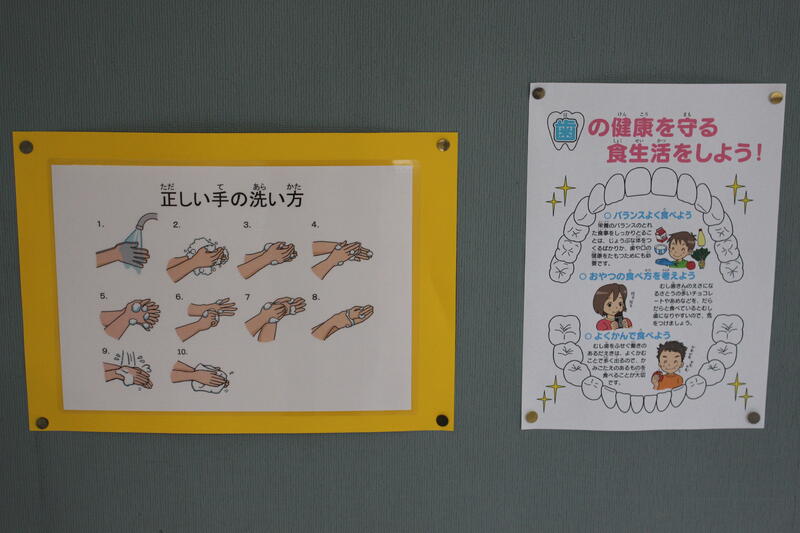 正しい手の洗い方
1.
2.
3.
4.
5.
6.
7
8.
9
10.
歯の健康を守る
食生活をしよう!
バランスよく食べよう
栄養のバランスのとれ
た食事をしっかりとるこ
とは、じょうぶな体をつ
くるばかりか、歯や口の
健康をたもつためにも必
要です。
おやつの食べ方を考えよう
むし歯きんのえさにな
るさとうの多いチョコレ
ートやあめなどを、だら
だらと食べているとむし
歯になりやすいので、気
をつけましょう。
よくかんで食べよう
むし歯をふせぐ働きの
あるだえきは、よくかむ
ことで多く出るので、か
みごたえのあるものを
食べることが大切
です。